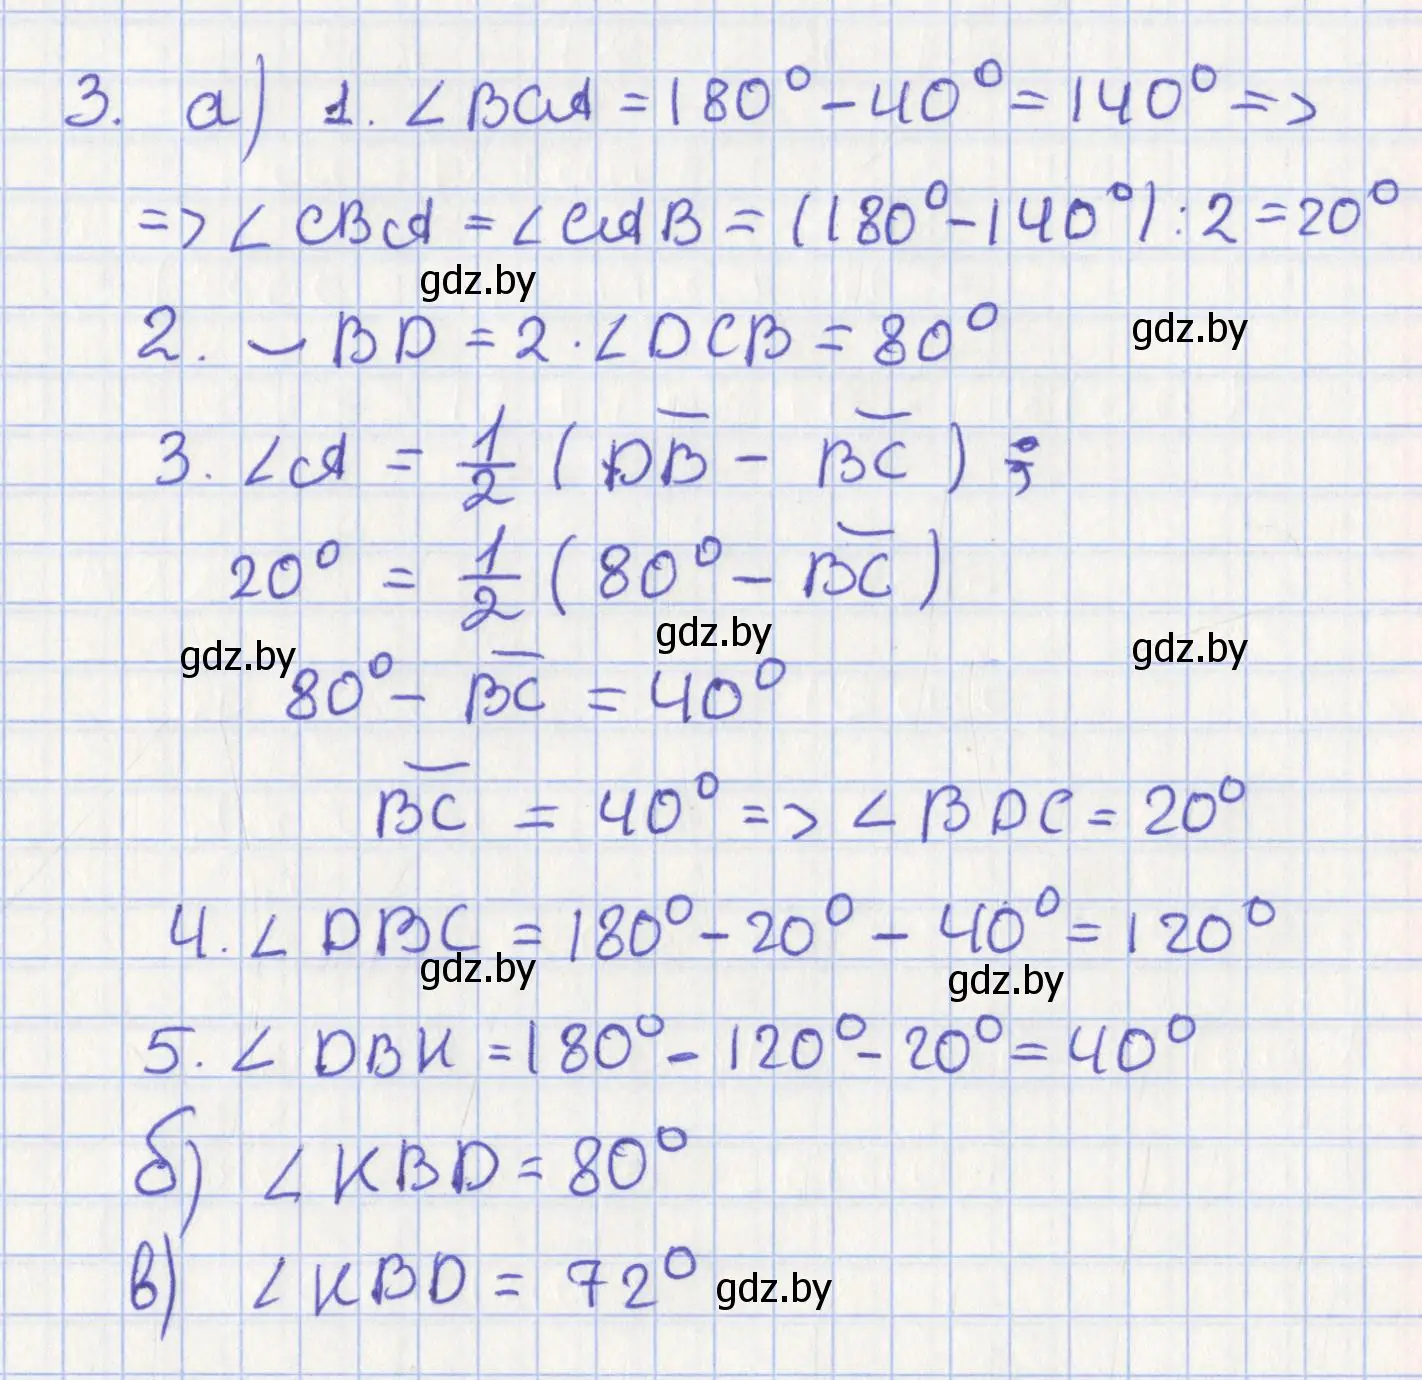 3. а) 1. ∠BCA = 180° - 40° = 140° =>
=> ∠CBA = ∠CAB = (180° - 140°) : 2 = 20°
gdz.by
gdz.by
2. ⌣BD = 2 · ∠DCB = 80°
3. ∠A = 1/2 (D⌣B - ⌣BC) ;
20° = 1/2 (80° - ⌣BC)
gdz.by
gdz.by
gdz.by
80° - ⌣BC = 40°
⌣BC = 40° => ∠BDC = 20°
4. ∠DBC = 180° - 20° - 40° = 120°
gdz.by
gdz.by
5. ∠DBK = 180° - 120° - 20° = 40°
б) ∠KBD = 80°
в) ∠KBD = 72°
gdz.by